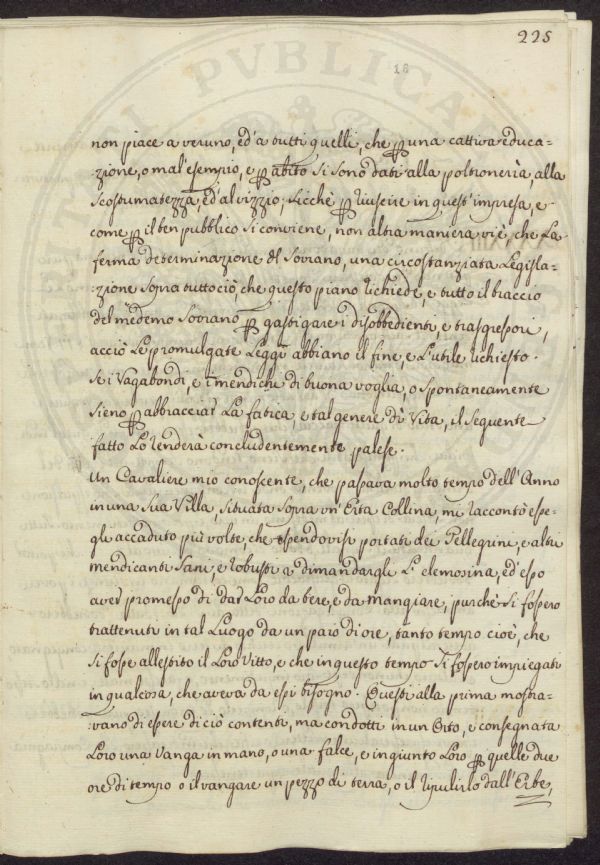 225
16
PVBLICA
non piace a veruno, ed'a tutti quelli, che p una cattiva educa=
zione, o mal'esempio, e p abito si sono dati alla poltronerìa, alla
scostumatezza, ed'al vizzio; sicchè p riuscire in quest'impresa, e
come p il ben pubblico si conviene, non altra maniera v'è, che La
ferma determinazione del Sovrano, una circostanziata Legisla=
:zione sopra tuttociò, che questo piano richiede, e tutto il braccio
del medemo Sovrano p gastigare i disobbedienti, e trasgressori,
acciò Le promulgate Leggi abbiano il fine, e L'utile richiesto.
Se i Vagabondi, e i mendichi di buona voglia, o spontaneamente
sieno p abbracciar La fatica, e tal genere di Vita, il seguente
fatto Lo renderà concludentemente palese.
Un Cavaliere mio conoscente, che passava molto tempo dell'Anno
in una sua Villa, situata sopra un'Erta Collina, mi raccontò esse=
gli accaduto più volte, che essendovisi portati dei Pellegrini, e altri
mendicanti sani, e robusti a dimandargli L'elemosina, ed'esso
aver promesso di dar Loro da bere, e da mangiare, purchè si fossero
trattenuti in tal Luogo da un paio di ore, tanto tempo cioè, che
si fosse allestito il Loro Vitto, e che in questo tempo si fossero impiegati
in qualcosa, che aveva da essi bisogno. Questi alla prima mostra=
:vano di essere di ciò contenti, ma condotti in un Orto, e consegnata
Loro una Vanga in mano, o una falce, e ingiunto Loro p quelle due
ore di tempo o il vangare un pezzo di terra, o il ripulirlo dall'Erbe,